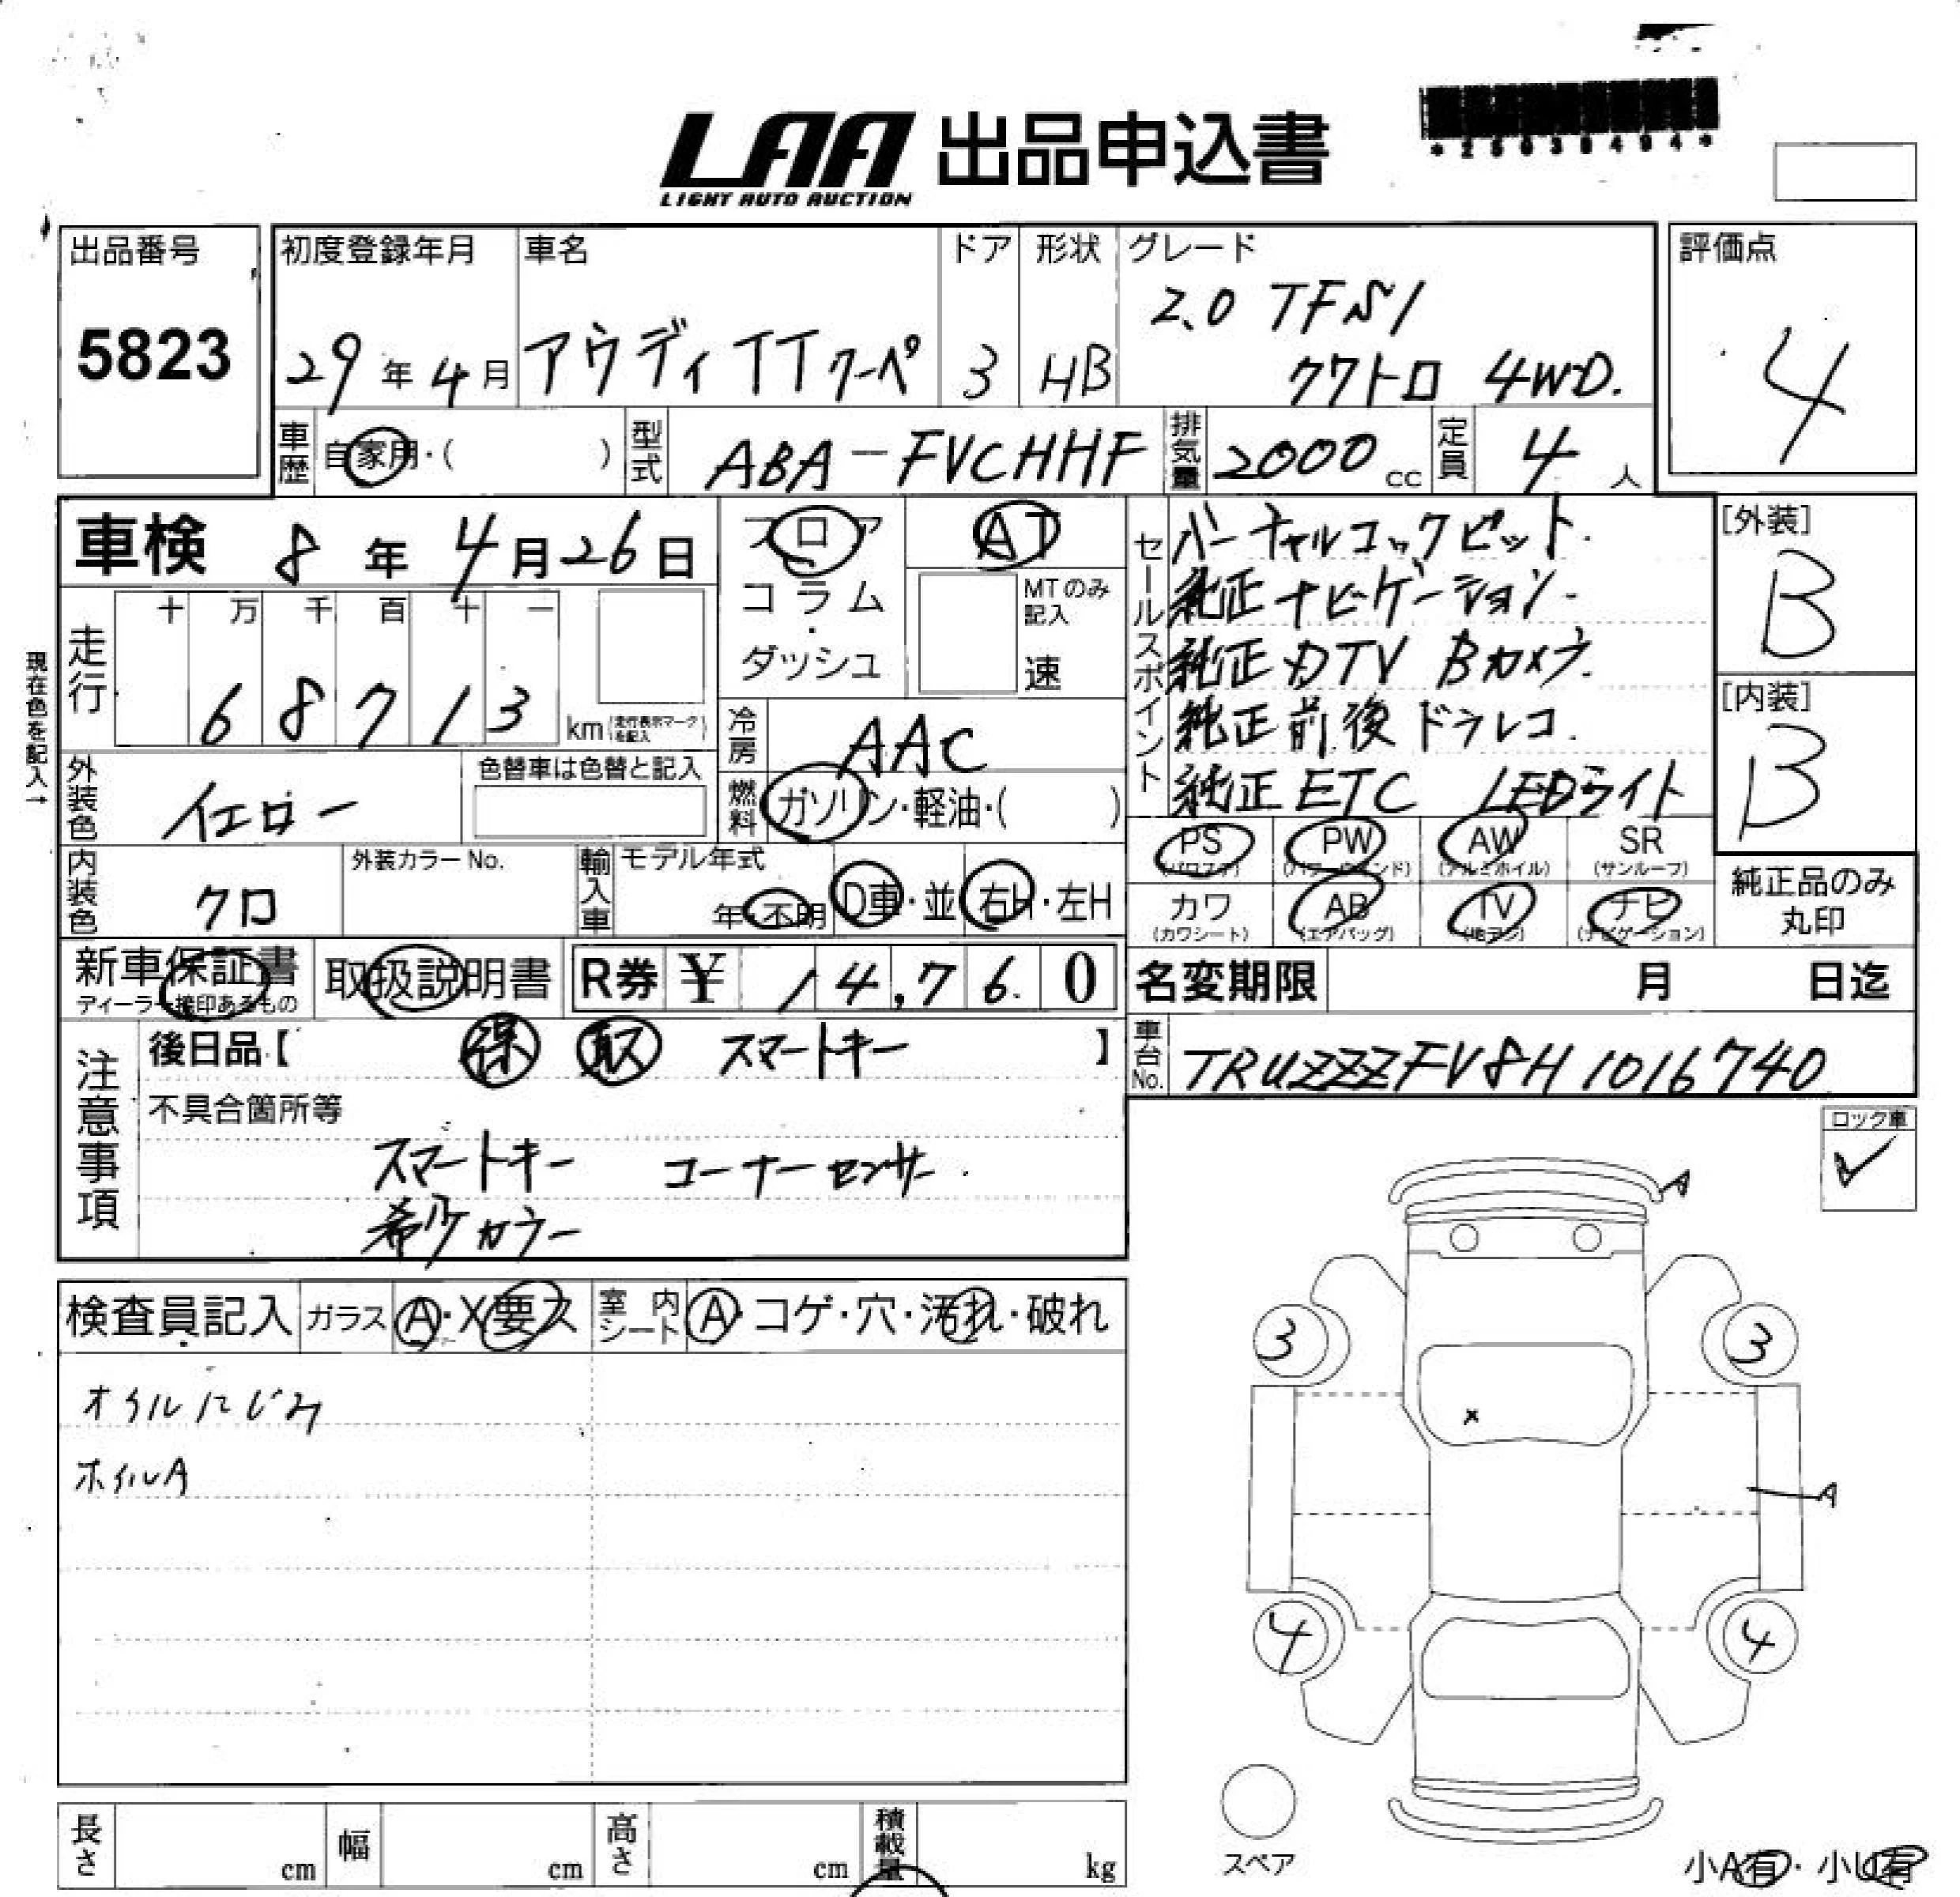 LAA 出品申込書
LIGHT AUTO AUCTION
*25038494*
出品番号
5823
初度登録年月
29年4月
車名
アウディ TT クーペ
ドア
3
形状
HB
グレード
2.0 TFSI
クワトロ 4WD.
評価点
4
車歴
自家用・( )
型式
ABA-FVCHHF
排気量
2000 cc
定員
4人
車検 8年4月26日
フロア
コラム
・
ダッシュ
AT
MTのみ記入
速
セールスポイント
バーチャルコックピット.
純正ナビゲーション.
純正DTV Bカメラ.
純正前後ドラレコ.
純正ETC LEDライト
[外装]
B
[内装]
B
現在色を記入→
走行
十 万 千 百 十 一
6 8 7 1 3
km(走行表示マークを記入)
冷房
AAC
燃料
ガソリン・軽油・( )
外装色
イエロー
色替車は色替と記入
内装色
クロ
外装カラーNo.
輸入車
モデル年式
年・不明
D車・並
右H・左H
PS
(パワステ)
PW
(パワーウインド)
AW
(アルミホイル)
SR
(サンルーフ)
カワ
(カワシート)
AB
(エアバッグ)
TV
(地デジ)
ナビ
(ナビゲーション)
純正品のみ
丸印
新車保証書
ディーラー捺印あるもの
取扱説明書
R券 ¥ 14,760
名変期限 月 日迄
注意事項
後日品【 保 取 スマートキー 】
車台No.
TRUZZZFV8H1016740
不具合箇所等
スマートキー コーナーセンサー.
希少カラー
ロック車
✓
A
検査員記入
ガラス
A・X要ス
室内シート
A・コゲ・穴・汚れ・破れ
オイルにじみ
ホイルA
3
3
x
A
4
4
スペア
長さ cm
幅 cm
高さ cm
積載量 kg
小A有・小U有